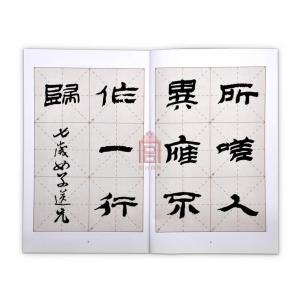 所嗟人
異雁不
作一行
歸
七歲女子送兄